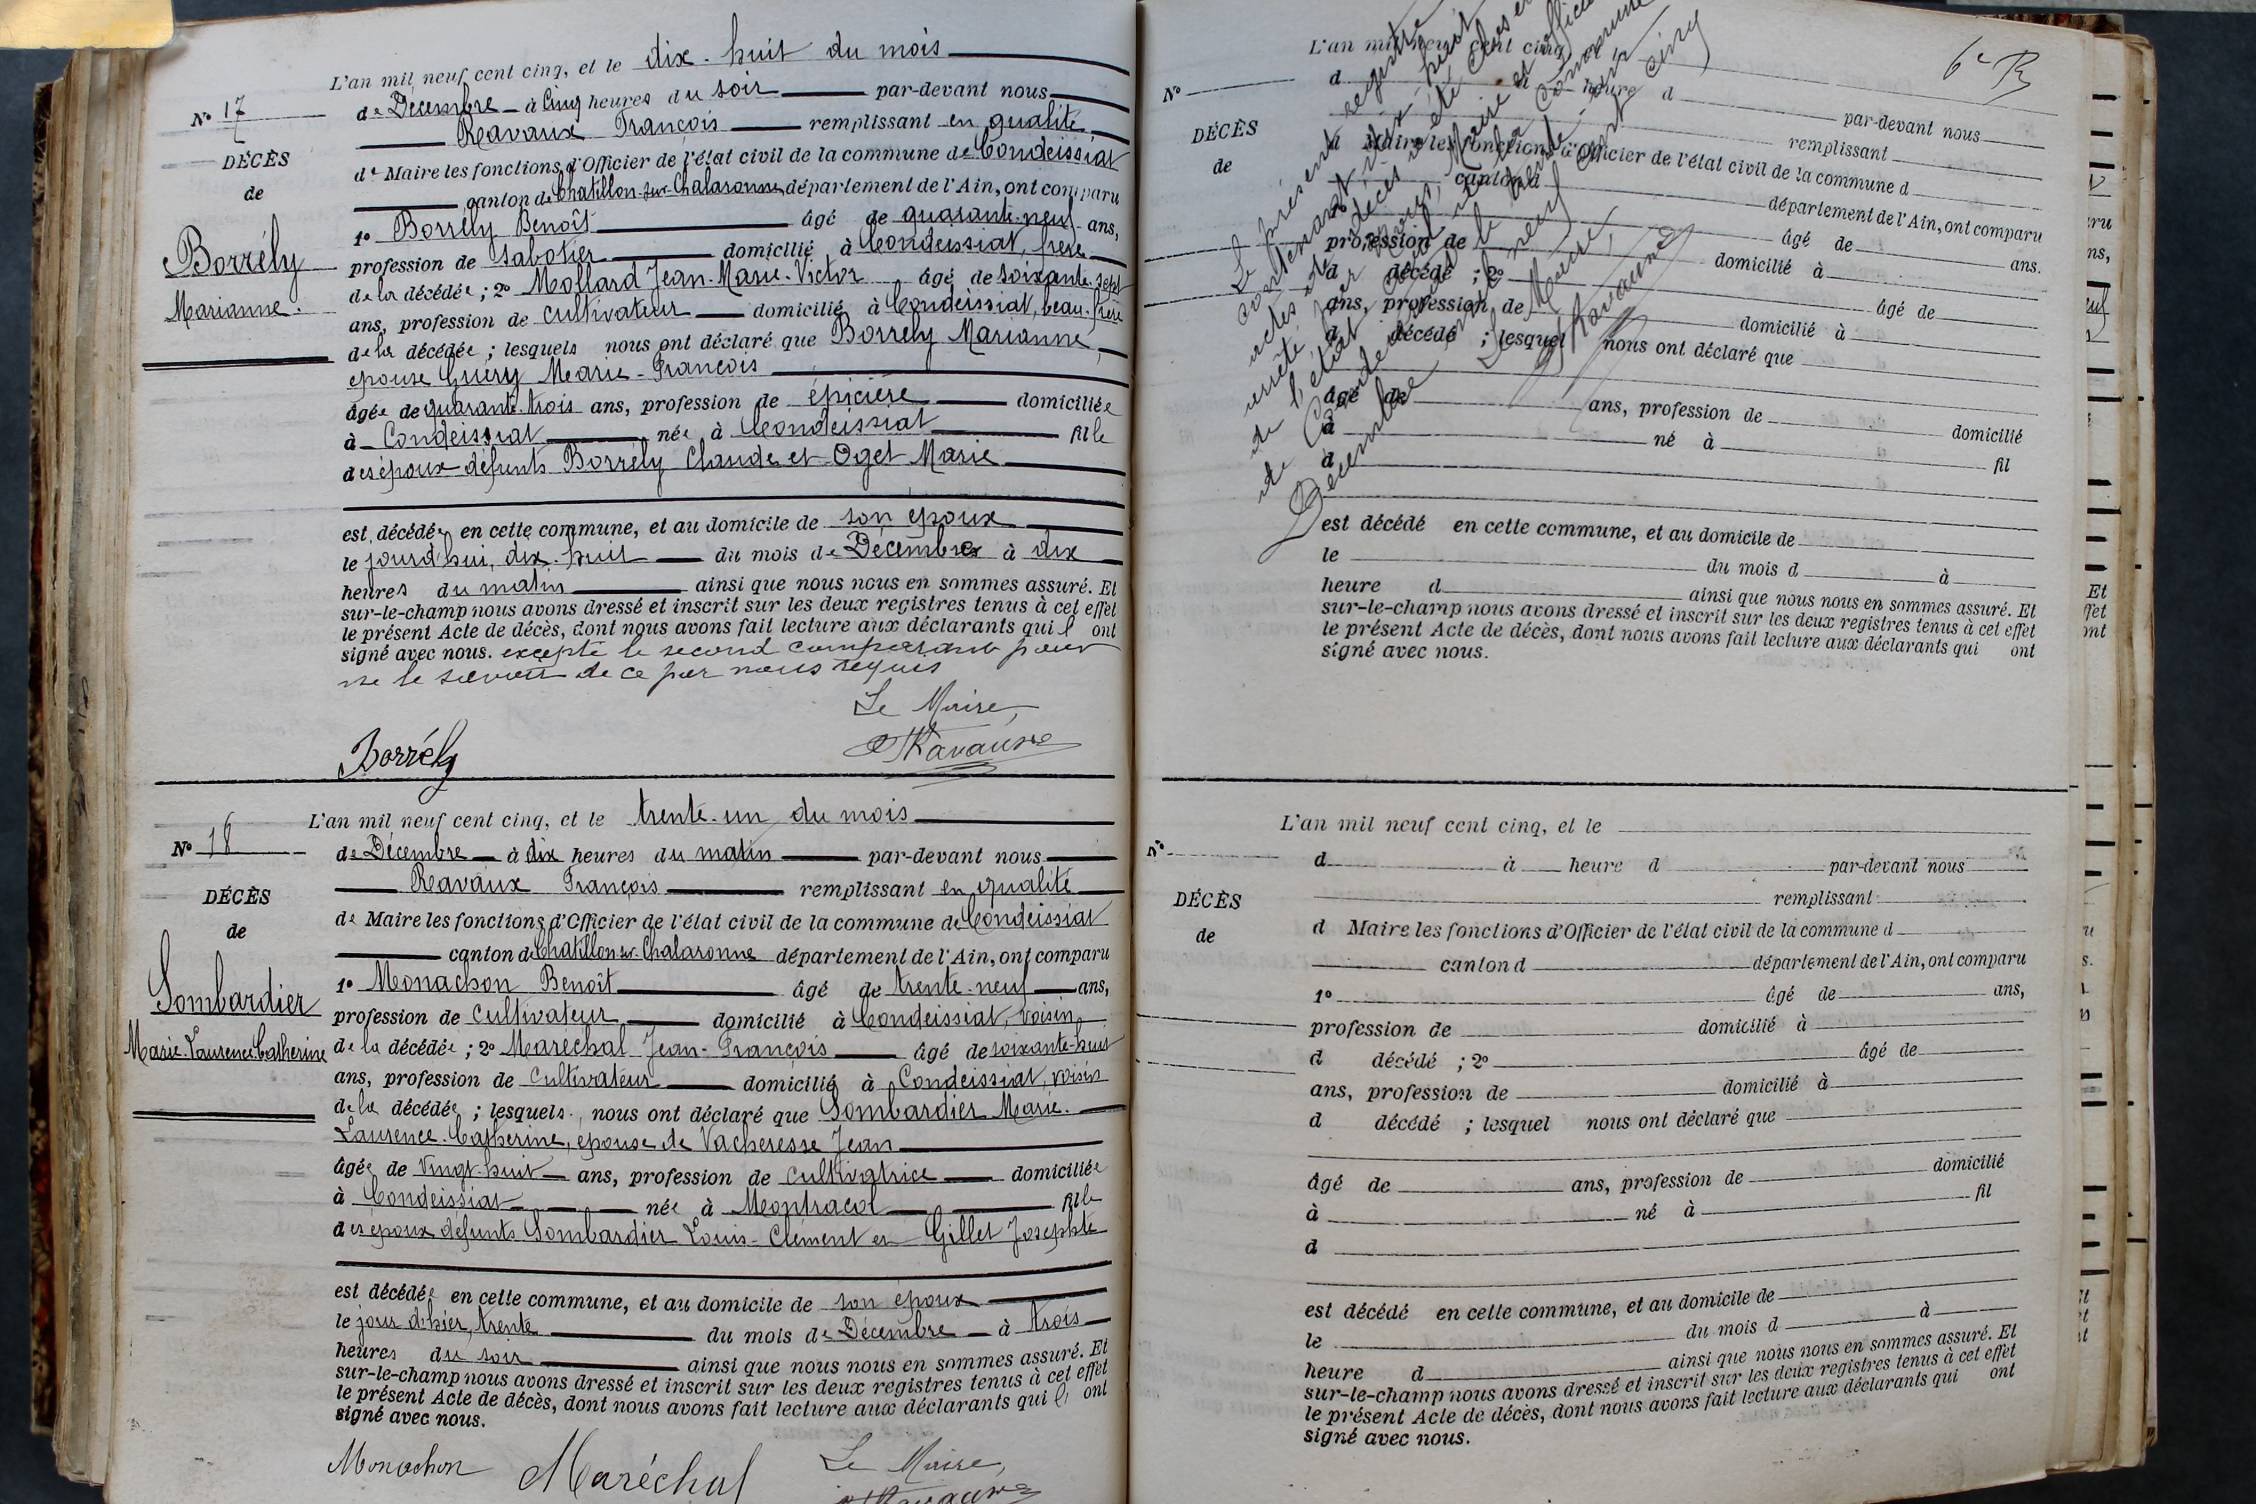 L'an mil neuf cent cinq, et le dix-huit du mois
N° 17
de Décembre à Cinq heures du soir par-devant nous
Ravaux François remplissant en qualité
DÉCÈS
de Maire les fonctions d'Officier de l'état civil de la commune de Condeissiat
de
canton de Chatillon-sur-Chalaronne département de l'Ain, ont comparu
1° Borrély Benoît âgé de quarante-neuf ans,
Borrély
profession de Sabotier domicilié à Condeissiat, frère
de la décédée ; 2° Mollard Jean-Marie-Victor âgé de soixante-sept
Marianne.
ans, profession de cultivateur domicilié à Condeissiat, beau-frère
de la décédée ; lesquels nous ont déclaré que Borrély Marianne,
épouse Guéry Marie-François
âgée de quarante-trois ans, profession de épicière domiciliée
à Condeissiat née à Condeissiat fille
des époux défunts Borrély Claude et Oget Marie
est décédée en cette commune, et au domicile de son époux
le jourd'hui, dix-huit du mois de Décembre à dix
heures du matin ainsi que nous nous en sommes assuré. Et
sur-le-champ nous avons dressé et inscrit sur les deux registres tenus à cet effet
le présent Acte de décès, dont nous avons fait lecture aux déclarants qui l ont
signé avec nous. excepté le second comparant pour
ne le savoir de ce par nous requis
Le Maire,
Borrély
Ravaux
L'an mil neuf cent cinq, et le trente-un du mois
N° 18
de Décembre à dix heures du matin par-devant nous
Ravaux François remplissant en qualité
DÉCÈS
de Maire les fonctions d'Officier de l'état civil de la commune de Condeissiat
de
canton de Chatillon-sur-Chalaronne département de l'Ain, ont comparu
1° Monachon Benoît âgé de trente-neuf ans,
Sombardier
profession de cultivateur domicilié à Condeissiat, voisin
Marie-Laurence-Catherine
de la décédée ; 2° Maréchal Jean-François âgé de soixante-huit
ans, profession de cultivateur domicilié à Condeissiat, voisin
de la décédée ; lesquels nous ont déclaré que Sombardier Marie-
Laurence-Catherine, épouse de Vacheresse Jean
âgée de vingt-huit ans, profession de cultivatrice domiciliée
à Condeissiat née à Montracol fille
des époux défunts Sombardier Louis-Clément et Gillet Josephte
est décédée en cette commune, et au domicile de son époux
le jour d'hier, trente du mois de Décembre à trois
heures du soir ainsi que nous nous en sommes assuré. Et
sur-le-champ nous avons dressé et inscrit sur les deux registres tenus à cet effet
le présent Acte de décès, dont nous avons fait lecture aux déclarants qui l ont
signé avec nous.
Monachon Maréchal Le Maire,
Ravaux
6e
L'an mil neuf cent cinq
N°
d heure d par-devant nous
DÉCÈS
remplissant
de
d Maire les fonctions d'Officier de l'état civil de la commune d
canton d département de l'Ain, ont comparu
âgé de ans.
profession de domicilié à
d décédé ; 2° âgé de
ans, profession de domicilié à
d décédé ; lesquel nous ont déclaré que
âgé de ans, profession de domicilié
à né à fil
d
est décédé en cette commune, et au domicile de
le du mois d à
heure d ainsi que nous nous en sommes assuré. Et
sur-le-champ nous avons dressé et inscrit sur les deux registres tenus à cet effet
le présent Acte de décès, dont nous avons fait lecture aux déclarants qui ont
signé avec nous.
Le présent registre
contenant dix-huit
actes de décès a été clos et
arrêté par nous, Maire et officier
de l'état civil de la commune
de Condeissiat le trente-un
Décembre mil neuf cent cinq
Le Maire,
Ravaux
L'an mil neuf cent cinq, et le
N°
d à heure d par-devant nous
DÉCÈS
remplissant
de
d Maire les fonctions d'Officier de l'état civil de la commune d
canton d département de l'Ain, ont comparu
1° âgé de ans,
profession de domicilié à
d décédé ; 2° âgé de
ans, profession de domicilié à
d décédé ; lesquel nous ont déclaré que
âgé de ans, profession de domicilié
à né à fil
d
est décédé en cette commune, et au domicile de
le du mois d à
heure d ainsi que nous nous en sommes assuré. Et
sur-le-champ nous avons dressé et inscrit sur les deux registres tenus à cet effet
le présent Acte de décès, dont nous avons fait lecture aux déclarants qui ont
signé avec nous.